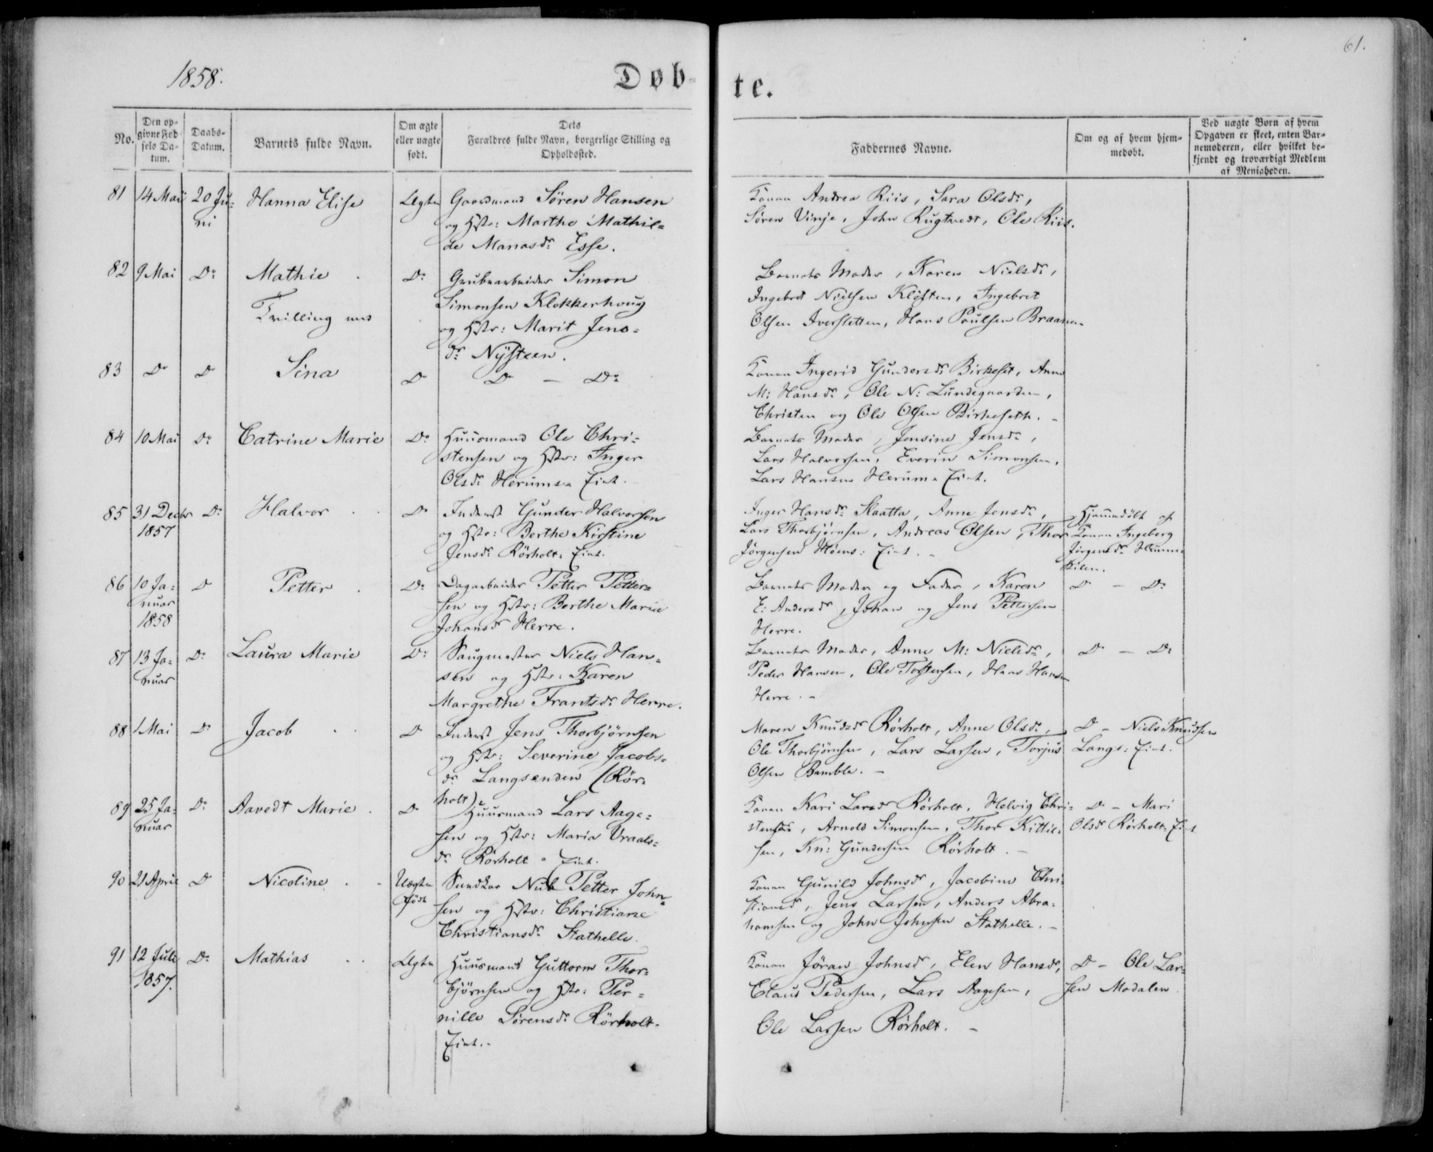 61.
1858.
Døb-te.
No.
Den op-
givne Fød-
sels Da-
tum.
Daabs-
Datum.
Barnets fulde Navn.
Om ægte
eller uægte
født.
Dets
Forældres fulde Navn, borgerlige Stilling og
Opholdssted.
Faddernes Navne.
Om og af hvem hjem-
medøbt.
Ved uægte Børn af hvem
Opgaven er skeet, enten Bar-
nemoderen, eller hvilket be-
kjendt og troværdigt Medlem
af Menigheden.
81 14 Mai 20 Ju-
ni
Hanna Elise
Ægte
Gaardmand Søren Hansen
og Hstr: Marthe Mathil-
de Manasdr Esse.
Konen Andrea Riis, Sara Olsdr,
Søren Vinje, John Rugtvedt, Ole Riis.
82 9 Mai Do
Mathie
Tvilling med
Do
Grubearbeider Simon
Simonsen Klokkerhoug
og Hstr: Marit Jens-
dr Nysteen.
Barnets Moder, Karen Nielsdr,
Ingebret Nielsen Kløften, Ingebret
Olsen Iversletten, Hans Poulsen Braaten
83 Do Do
Sina
Do
Do - Do
Konen Ingerid Gundersdr Birkeset, Anne
M: Hansdr, Ole N: Lundegaarden,
Christen og Ole Olsen Birkeseth. -
84 10 Mai Do
Catrine Marie
Do
Huusmand Ole Chri-
stensen og Hstr: Inger
Olsdr Herums Eiet.
Barnets Moder, Jensine Jensdr,
Lars Halvorsen, Everin Simonsen,
Lars Hansen Herums Eiet.
85 31 Decbr
1857
Do
Halvor
Do
Inderst Gunder Halvorsen
og Hstr: Berthe Kirstine
Jensdr Rörholts Eiet.
Inger Hansdr Skaatta, Anne Jensdr,
Lars Thorbjörnsen, Andreas Olsen, Thor
Jörgensen Eiet. -
Hjemmedöbt af
Konen Ingeborg
Jörgensdr
86 10 Ja-
nuar
1858
Do
Petter
Do
Dagarbeider Petter Petter-
sen og Hstr: Berthe Marie
Johansdr Herre.
Barnets Moder og Fader, Karen
E: Andersdr, Johan og Jens Pettersen
Herre.
Do - Do
87 13 Ja-
nuar
Do
Laura Marie
Do
Saugmester Niels Han-
sen og Hstr: Karen
Margrethe Frantsdr Herre.
Barnets Moder, Anne M: Nielsdr,
Peder Hansen, Ole Torstensen, Hans Hansen
Herre. -
Do - Do
88 1 Mai Do
Jacob
Do
Inderst Jens Thorbjørnsen
og Hstr: Severine Jacobs-
dr Langsenden (Rör-
holt).
Maren Knudsdr Rörholt, Anne Olsdr,
Ole Thorbjörnsen, Lars Larsen, Torjus
Olsen Bamble. -
Do - Niels Knudsen
Langs: Eiet.
89 25 Ja-
nuar
Do
Aavedt Marie
Do
Huusmand Lars Aage-
sen og Hstr: Maria Vraals-
dr Rörholt Eiet.
Konen Kari Larsdr Rörholt, Helvig Chri-
stensdr, Arnold Simonsen, Thor Kittil-
sen, Kn: Gundersen Rörholt. -
Do - Mari
Olsdr Rörholts Eiet
90 21 April Do
Nicoline
Uægte
født
Petter John-
sen og Hstr: Christiane
Christiansdr Stathelle.
Konen Gunild Johnsdr, Jacobine Chri-
stiansdr, Jens Larsen, Anders Abra-
hamsen og John Johnsen Stathelle. -
91 12 Juli
1857.
Do
Mathias
Ægte
Huusmand Guttorm Thor-
bjørnsen og Hstr: Per-
nille Sørensdr Rörholt-
Eiet. -
Konen Jöran Johnsdr, Elen Hansdr,
Claus Pedersen, Lars Aagesen,
Ole Larsen Rörholt. -
Do - Ole Lar-
sen Modalen.